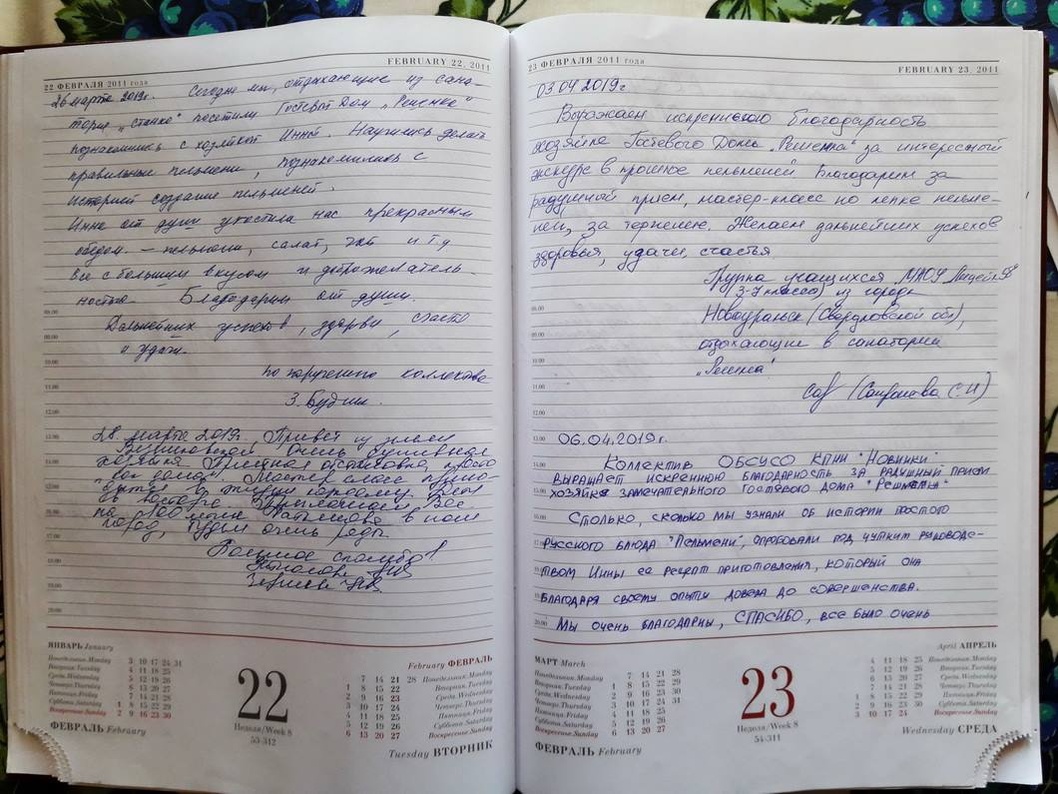 22 ФЕВРАЛЯ 2011 года
FEBRUARY 22, 2011
26 марта 2019г. Сегодня мы, отдыхающие из сана-
тория посетили Гостевой Дом „Решенка"
познакомились с хозяйкой Инной. Научились делать
правильные пельмени, познакомились с
историей создания пельменей.
Инна от души угостила нас прекрасным
обедом – пельмени, салат, чай и т.д
все с большим вкусом и доброжелатель-
ностью. Благодарим от души.
Дальнейших успехов, здоровья, счастья
и удачи.
По поручению коллектива
З. Будник.
28. марта 2019г. Привет из земли
Очень душевная
хозяйка просто
Мастер класс
в
Большое спасибо!
08:00
09:00
10:00
11:00
12:00
13:00
14:00
15:00
16:00
17:00
18:00
19:00
20:00
ЯНВАРЬ January
Понедельник.Monday 3 10 17 24 31
Вторник.Tuesday 4 11 18 25
Среда.Wednesday 5 12 19 26
Четверг.Thursday 6 13 20 27
Пятница.Friday 7 14 21 28
Суббота.Saturday 1 8 15 22 29
Воскресенье.Sunday 2 9 16 23 30
ФЕВРАЛЬ February
22
Неделя/Week 8
53-312
February ФЕВРАЛЬ
7 14 21 28 Понедельник.Monday
1 8 15 22 Вторник.Tuesday
2 9 16 23 Среда.Wednesday
3 10 17 24 Четверг.Thursday
4 11 18 25 Пятница.Friday
5 12 19 26 Суббота.Saturday
6 13 20 27 Воскресенье.Sunday
Tuesday ВТОРНИК
23 ФЕВРАЛЯ 2011 года
FEBRUARY 23, 2011
03.04 2019г
Выражаем искреннюю благодарность
хозяйке Гостевого Дома „Решенка" за интересный
экскурс в прошлое пельменей Благодарим за
радушный прием, мастер-класс по лепке пельме-
ней, за терпение. Желаем дальнейших успехов
здоровья, удачи, счастья.
Группа учащихся МАОУ Лицей
(3-7 классов) из города
Новоуральск (Свердловской обл),
отдыхающие в санатории
„Решма"
06.04.2019г.
Коллектив ОБСУСО КПНИ "Новинки"
выражает искреннюю благодарность за радушный прием
хозяйке замечательного гостевого дома "Решменка"
Столько, сколько мы узнали об истории простого
русского блюда "Пельмени", опробовали под чутким руководс-
твом Инны ее рецепт приготовления, который она
благодаря своему опыту довела до совершенства.
Мы очень благодарны, СПАСИБО, все было очень
08:00
09:00
10:00
11:00
12:00
13:00
14:00
15:00
16:00
17:00
18:00
19:00
20:00
МАРТ March
Понедельник.Monday 7 14 21 28
Вторник.Tuesday 1 8 15 22 29
Среда.Wednesday 2 9 16 23 30
Четверг.Thursday 3 10 17 24 31
Пятница.Friday 4 11 18 25
Суббота.Saturday 5 12 19 26
Воскресенье.Sunday 6 13 20 27
ФЕВРАЛЬ February
23
Неделя/Week 8
54-311
April АПРЕЛЬ
4 11 18 25 Понедельник.Monday
5 12 19 26 Вторник.Tuesday
6 13 20 27 Среда.Wednesday
7 14 21 28 Четверг.Thursday
1 8 15 22 29 Пятница.Friday
2 9 16 23 30 Суббота.Saturday
3 10 17 24 Воскресенье.Sunday
Wednesday СРЕДА